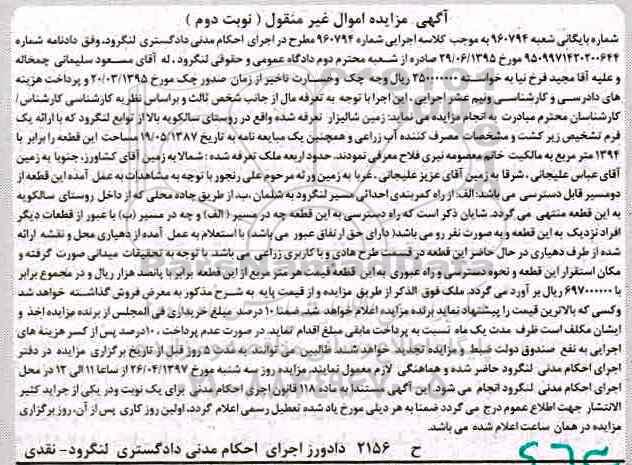 آگهی مزایده اموال غیر منقول ( نوبت دوم )
شماره بایگانی شعبه ۹۶۰۷۹۴ به موجب کلاسه اجرایی شماره ۹۶۰۷۹۴ مطرح در اجرای احکام مدنی دادگستری لنگرود، وفق دادنامه شماره
۹۵۰۹۹۷۱۴۲۰۲۰۰۶۴۴ مورخ ۲۹/۰۶/۱۳۹۵ صادره از شعبه محترم دوم دادگاه عمومی و حقوقی لنگرود ، له آقای مسعود سلیمانی چمخاله
و علیه آقا مجید فرخ نیا به خواسته ۲۵۰۰۰۰۰۰۰ ریال وجه چک وخسارت تاخیر از زمان صدور چک مورخ ۲۰/۰۳/۱۳۹۵ و پرداخت هزینه
های دادرسی و کارشناسی ونیم عشر اجرایی ، این اجرا با توجه به تعرفه مال از جانب شخص ثالث و براساس نظریه کارشناسی کارشناس/
کارشناسان محترم مبادرت به انجام مزایده می نماید: زمین شالیزار تعرفه شده واقع در روستای سالکویه بالا از توابع لنگرود که با ارائه یک
فرم تشخیص زیر کشت و مشخصات مصرف کننده آب زراعی و همچنین یک مبایعه نامه به تاریخ ۱۹/۰۵/۱۳۸۷ مساحت این قطعه را برابر با
۱۳۹۴ متر مربع به مالکیت خانم معصومه نیری فلاح معرفی نمودند. حدود اربعه ملک تعرفه شده : شمالا به زمین آقای کشاورز، جنوبا به زمین
آقای عباس علیجانی ، شرقا به زمین آقای عزیز علیجانی ، غربا به زمین ورثه مرحوم علی رنجور با توجه به مشاهدات به عمل آمده این قطعه از
دومسیر قابل دسترسی می باشد: الف: از راه کمربندی احداثی مسیر لنگرود به شلمان ،ب، از طریق جاده محلی که از داخل روستای سالکویه
به این قطعه منتهی می گردد. شایان ذکر است که راه دسترسی به این قطعه چه در مسیر ( الف) و چه در مسیر (ب) با عبور از قطعات دیگر
افراد نزدیک به این قطعه و به صورت نفر رو می باشد( دارای حق ارتفاق عبور می باشد) با استعلام به عمل آمده از دهیاری محل و نقشه ارائه
شده از طرف دهیاری در حال حاضر این قطعه در قسمت طرح هادی و با کاربری زراعی می باشد . با توجه به تحقیقات میدانی صورت گرفته و
مکان استقرار این قطعه و نحوه دسترسی و راه عبوری به این قطعه قیمت هر متر مربع از این قطعه برابر با پانصد هزار ریال و در مجموع برابر
با ۶۹۷۰۰۰۰۰۰ ریال بر آورد می گردد. ملک فوق الذکر از طریق مزایده و از قیمت پایه به شرح مذکور به معرض فروش گذاشته خواهد شد
وکسی که بالاترین قیمت را پیشنهاد نماید برنده مزایده اعلام خواهد شد. ضمنا ۱۰ درصد مبلغ خریداری فی المجلس از برنده مزایده اخذ و
ایشان مکلف است ظرف مدت یک ماه نسبت به پرداخت مابقی مبلغ اقدام نماید. در صورت عدم پرداخت ، ۱۰درصد پس از کسر هزینه های
اجرایی به نفع صندوق دولت ضبط و مزایده تجدید خواهد شد. طالبین می توانند به مدت ۵ روز قبل از تاریخ برگزاری مزایده در دفتر
اجرای احکام مدنی لنگرود حاضر شده و هماهنگی لازم معمول نمایند. مزایده روز سه شنبه مورخ ۲۶/۰۴/۱۳۹۷ از ساعا ۱۱ الی ۱۲ در محل
اجرای احکام مدنی لنگرود انجام می شود. این آگهی مستندا به ماده ۱۱۸ قانون اجرای احکام مدنی برای یک نوبت ودر یکی از جراید کثیر
الانتشار جهت اطلاع عموم درج می گردد ضمنا به هر دلیلی مورخ یاد شده تعطیل رسمی اعلام گردد، اولین روز کاری پس از آن، روز برگزاری
مزایده در همان ساعت اعلام شده می باشد.
ح ۲۱۵۶ دادورز اجرای احکام مدنی دادگستری لنگرود- نقدی